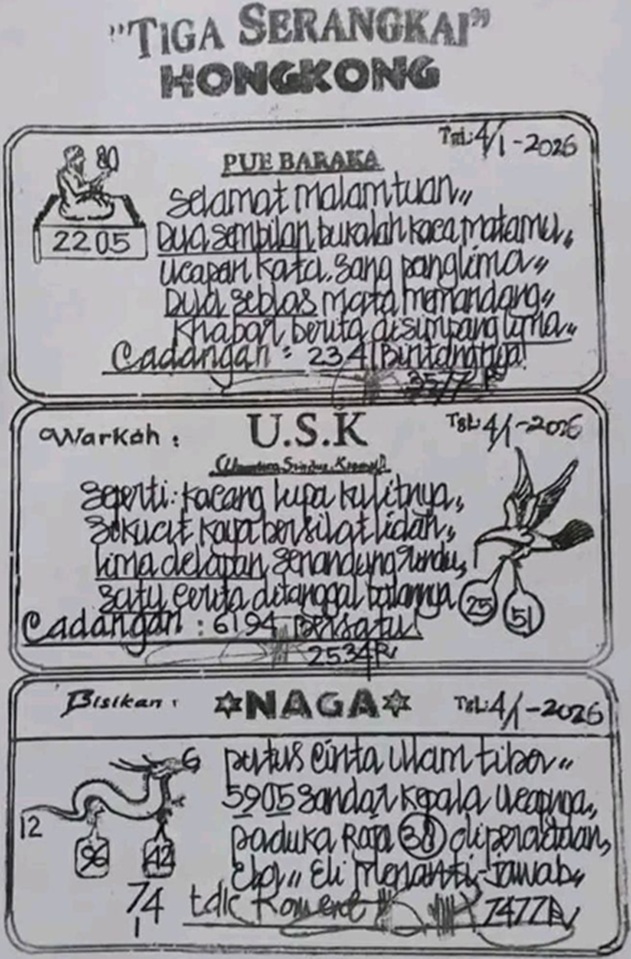 "TIGA SERANGKAI"
HONGKONG
Tgl: 4/1-2026
80
PUE BARAKA
2205
Selamat malam tuan,,
Dua sembilan bukalah kaca matamu,,
Ucapan kata. Sang panglima,,
Dua seblas mata memandang,,
Khabar berita disimpang lima,,
Cadangan: 2341 Bintangnya!
3577 R
Warkah:
U.S.K
Tgl: 4/1-2026
Seperti: kacang lupa kulitnya,,
Sekucit kaya bersilat lidah,,
lima delapan, Senandung rindu,
Satu cerita ditanggal
25
51
Cadangan: 6194 Bersatu!
2534 R
Bisikan:
NAGA
Tgl: 4/1-2026
Putus Cinta Ulam tiba,,
5905 Sandar kepala Ucapnya,
12
paduka Raja 38 diperaduan,
96
42
Eboy,, Eli Menanti-jawab,,
74
1
tdk Koment
7477 R